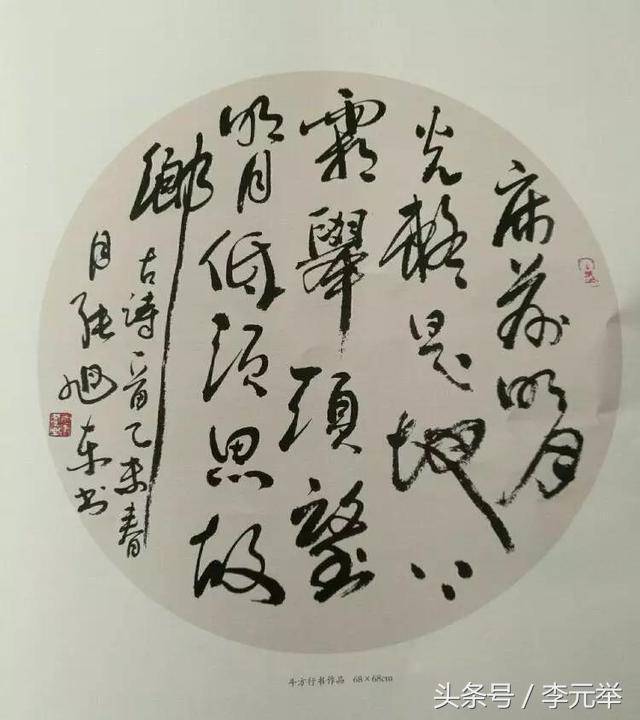 床前明月
光疑是地上
霜舉頭望
明月低頭思故
鄉
古詩一首乙未春
月張旭東書
斗方行书作品 68×68cm
头条号 / 李元举